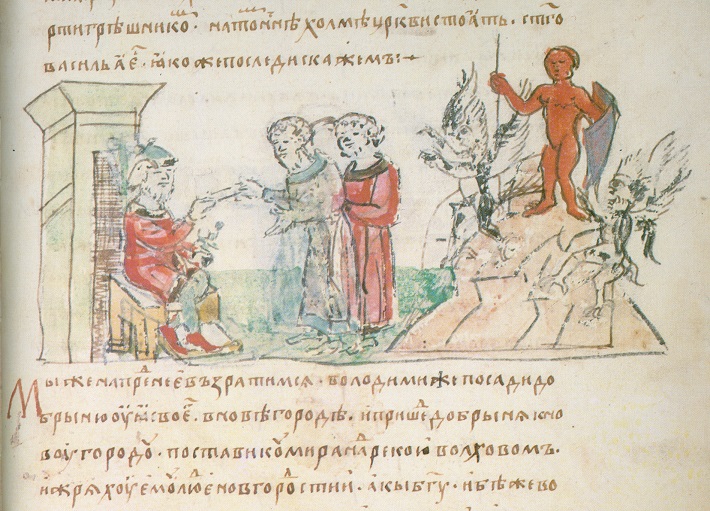 рти грѣшнико. на то нн҃ѣ холмѣ црк҃ви стоать. ст҃го
васильа е. ꙗкоже последи скажемъ:
Мы же на пренее възратимся. володими же посади до
брыню оуꙗ свое. в новѣгородѣ. и прише добрыня к но
воу городо. постави комира на рекою волховомъ.
и жряхоу емо люе новгоростии. акы бг҃у. и бѣ же во